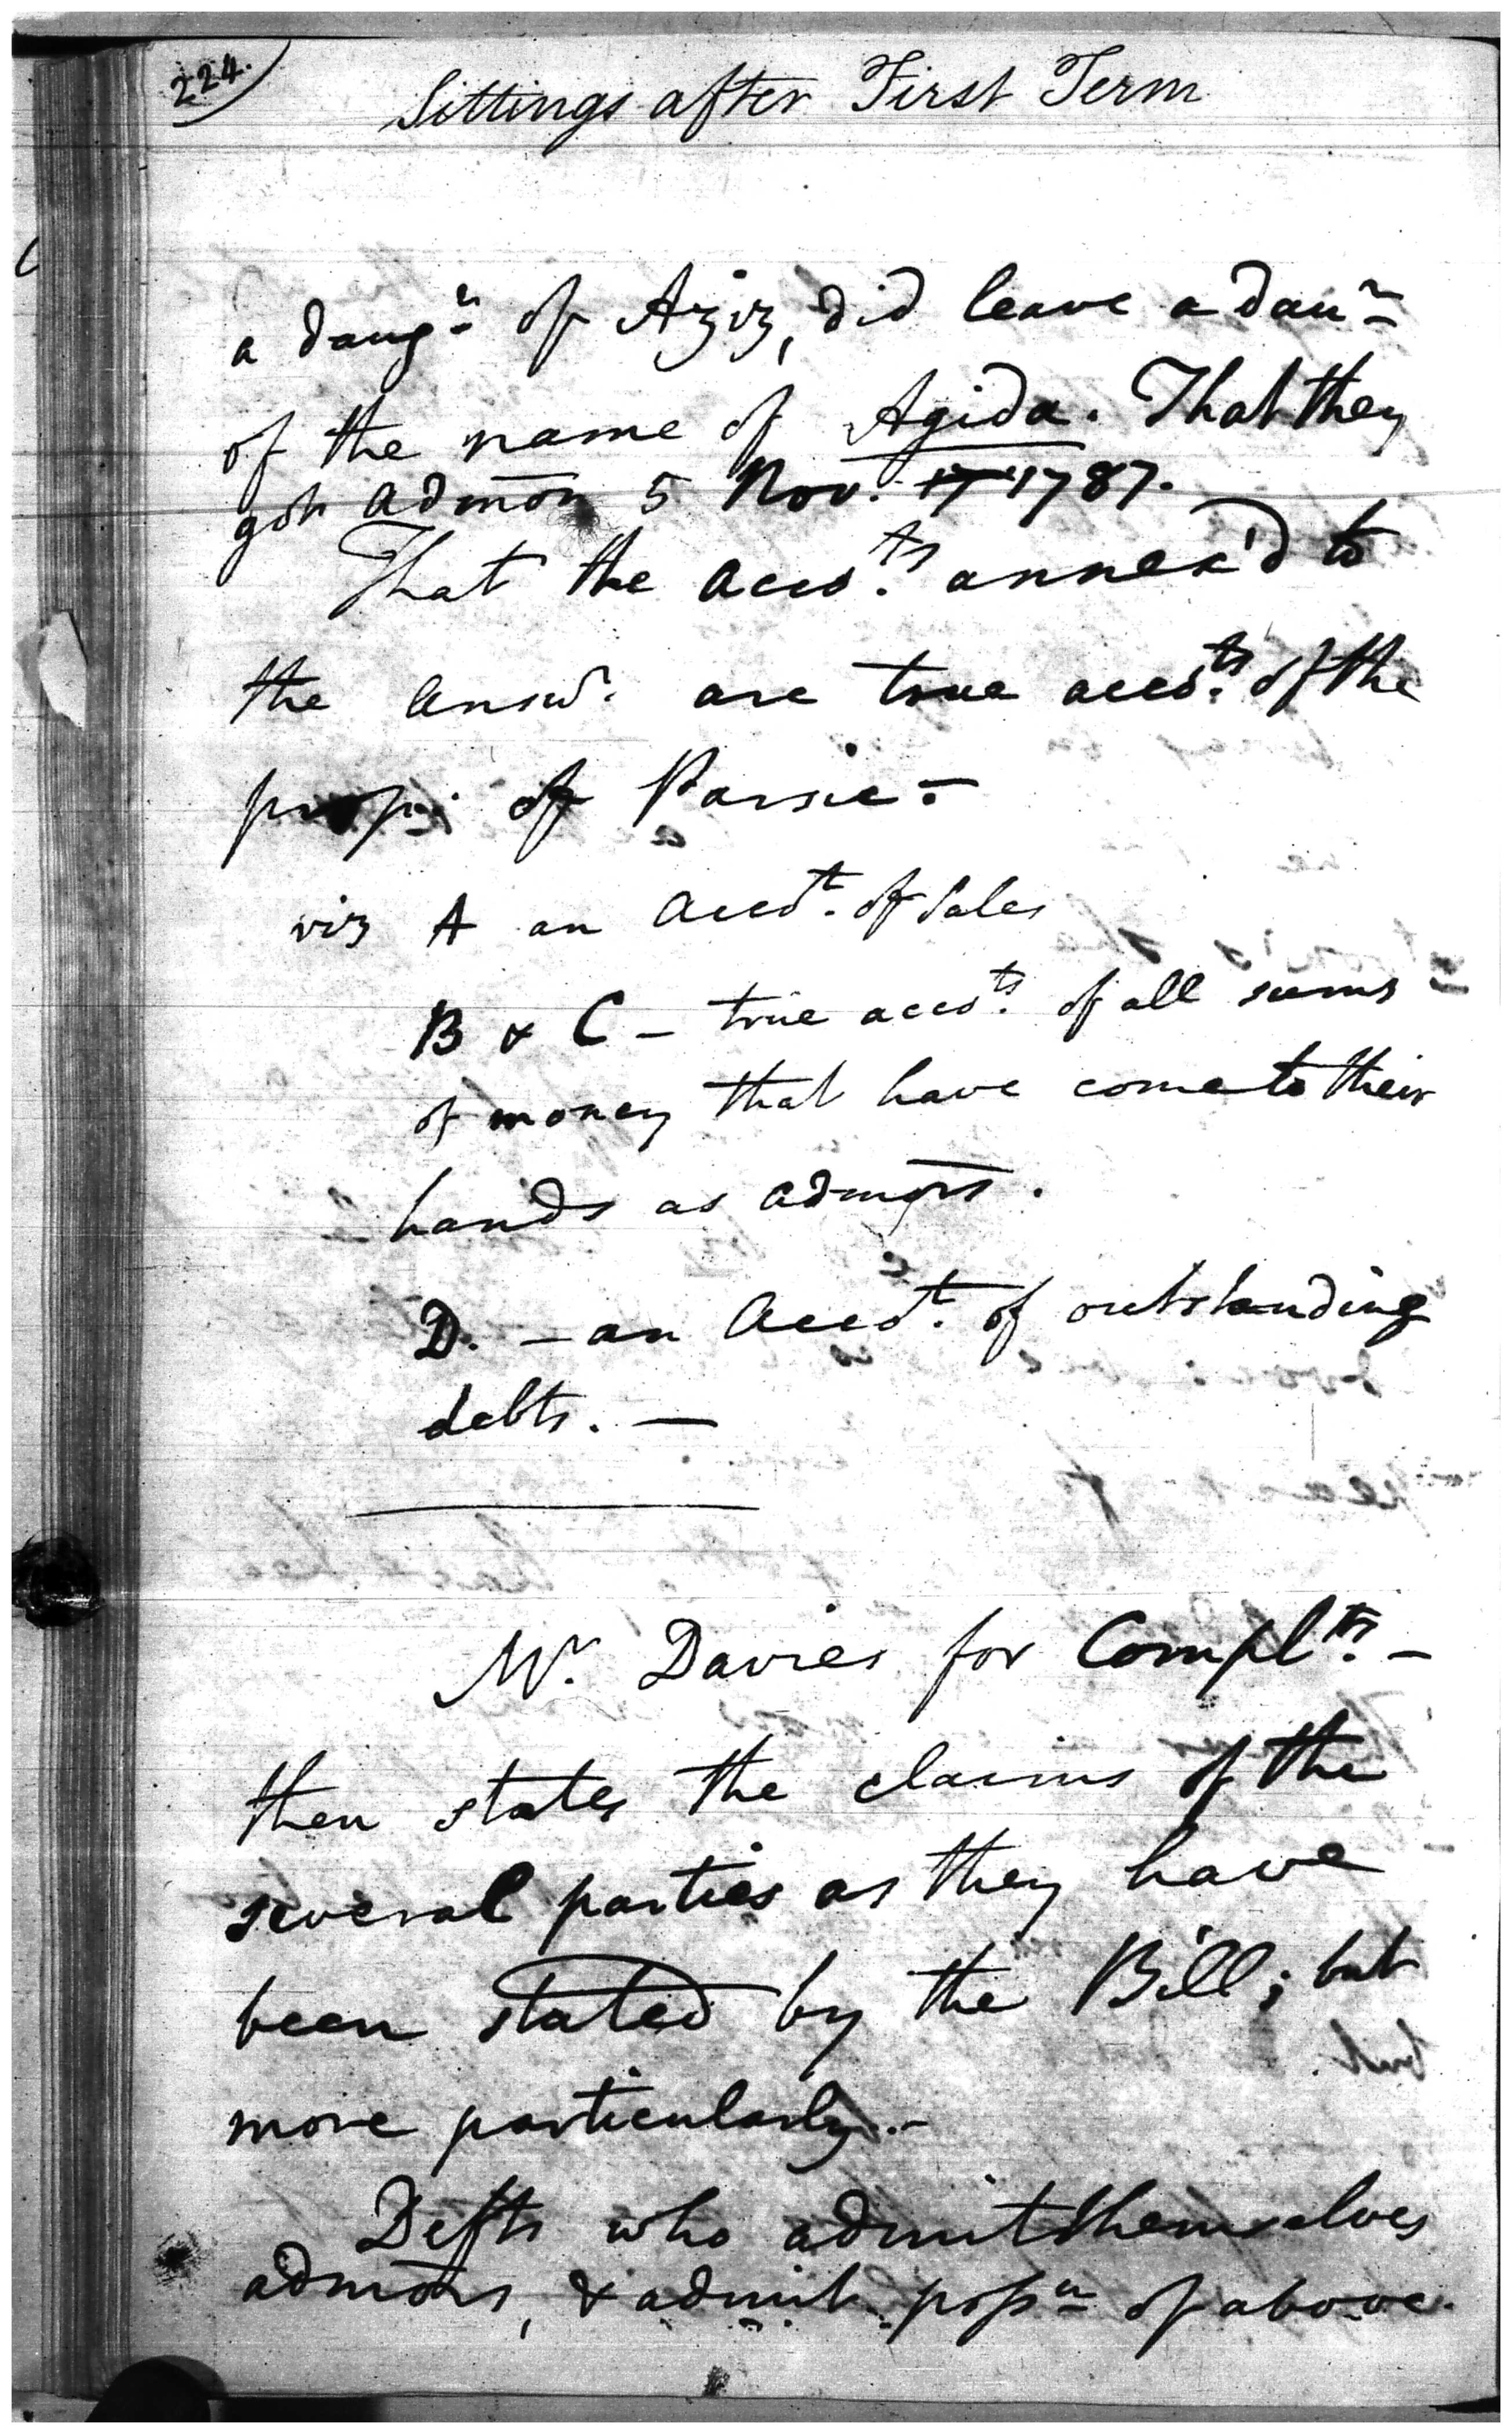 224.
Sittings after First Term
a daugr. of Aziz, did leave a daur.
of the name of Agida. That they
got admōn 5 Nov. 17 1787.
That the accots. annex'd to
the answr. are true accots. of the
propy. of Parsie. -
viz A an accot. of Sales
B & C - true accots. of all sums
of money that have come to their
hands as admors.
D. - an accot. of outstanding
debts. -
Mr. Davies for Complts. -
then states the claims of the
several parties as they have
been stated by the Bill; but
more particularly. -
Defts who admit themselves
admōrs, & admit possn. of above.